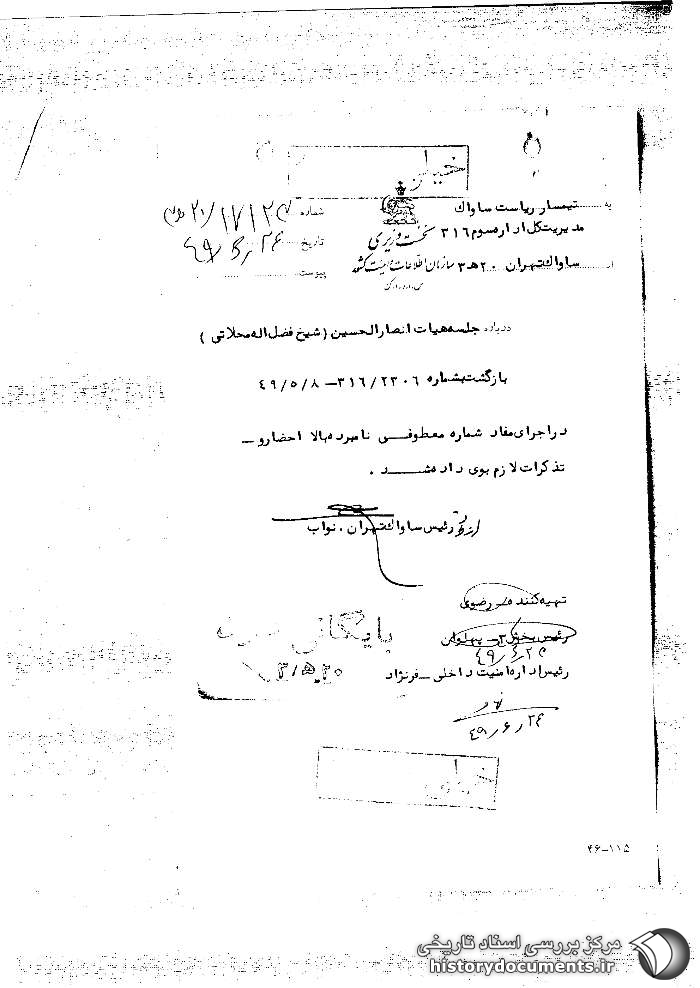 خیلی
به تیمسار ریاست ساواک
شماره ۱۷۱۲۴/۲۰
مدیریت کل اداره سوم ۳۱۶
نخست وزیری
تاریخ ۴۹/۶/۲۶
از ساواک تهران ۲۰ ه ۳
سازمان اطلاعات و امنیت کشور
پیوست
س.ا.و.ا.ک
درباره جلسه هیات انصارالحسین (شیخ فضل اله محلاتی)
بازگشت بشماره ۳۱۶/۲۳۰۶ - ۴۹/۵/۸
در اجرای مفاد شماره معطوفی نامبرده بالا احضار و -
تذکرات لازم بوی داده شد .
از طرف رئیس ساواک تهران . نواب
تهیه کننده - رضوی
رئیس بخش ۳ - پهلوان
پایگانی
رئیس اداره امنیت داخلی - فرنژاد
۲۰ ه ۳
۴۹/۶/۲۴
۴۶-۱۱۵
مرکز بررسی اسناد تاریخی
historydocuments.ir